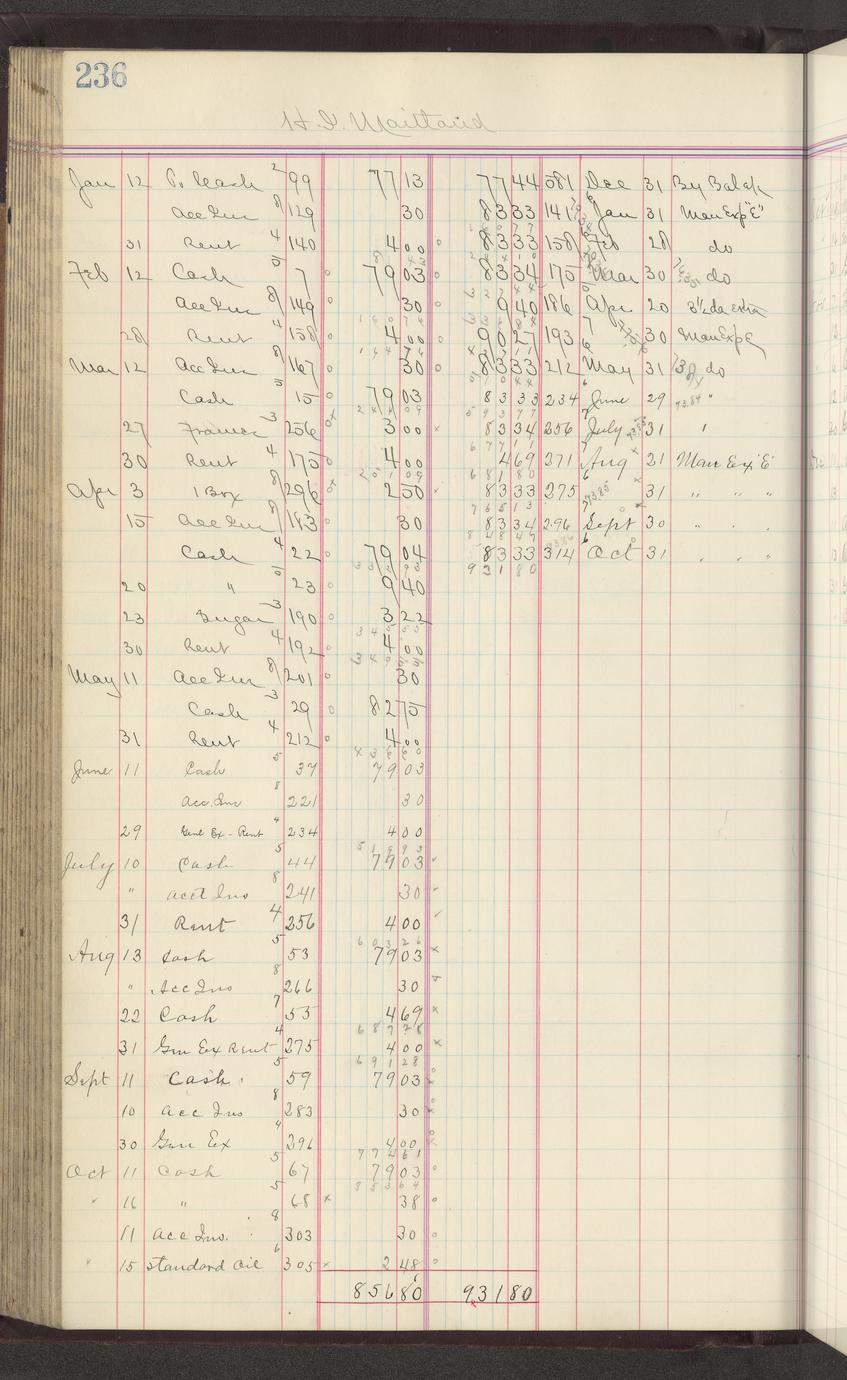 236
H. I. Maitland
Jan 12 To Cash 2 99 77 13 77 44 581 Dec 31 By Balance
Acc Ins 8 129 30 83 33 141 Jan 31 Man Exp "E"
31 Rent 4 140 4 00 83 33 158 Feb 28 do
Feb 12 Cash 5 7 79 03 83 34 175 Mar 30 do
Acc Ins 8 149 30 9 40 186 Apr 20 extra
28 Rent 4 158 4 00 90 27 193 30 Man Exp E
Mar 12 Acc Ins 8 167 30 83 33 212 May 31 do
Cash 5 15 79 03 83 33 234 June 29 "
27 3 256 3 00 83 34 256 July 31 "
30 Rent 4 175 4 00 4 69 271 Aug 21 Man Ex "E"
Apr 3 1 Box 8 296 2 50 83 33 275 31 " " "
15 Acc Ins 8 183 30 83 34 296 Sept 30 " " "
Cash 4 22 79 04 83 33 314 Oct 31 " " "
20 " 5 23 9 40
23 Sugar 3 190 3 22
30 Rent 4 192 4 00
May 11 Acc Ins 8 201 30
Cash 3 29 82 75
31 Rent 4 212 4 00
June 11 Cash 5 37 79 03
Acc. Ins 8 221 30
29 Genl Ex - Rent 4 234 4 00
July 10 Cash 5 44 79 03
" Acct Ins 8 241 30
31 Rent 4 256 4 00
Aug 13 Cash 5 53 79 03
" Acc Ins 8 266 30
22 Cash 7 55 4 69
31 Gen Ex Rent 4 275 4 00
Sept 11 Cash 5 59 79 03
10 Acc Ins 8 283 30
30 Gen Ex 4 296 4 00
Oct 11 Cash 5 67 79 03
" 16 " 5 68 38
11 Acc Ins. 8 303 30
" 15 Standard Oil 6 305 2 48
856 80 931 80